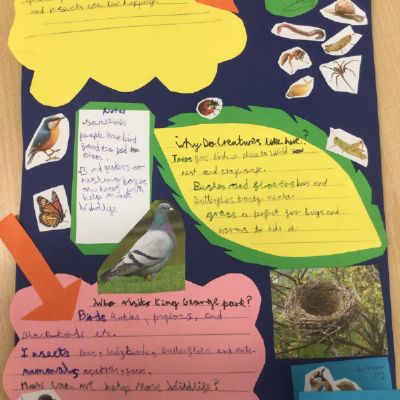 and insects can be happy.
Notes
Sometimes
people have bird
good to
Bird feeders or
nesting boxes
on trees
help more
wildlife
Why Do Creatures Like here?
Trees give birds a place to build
rest and stay safe.
Bushes and flowers bees and
Butterflies tasty nectar.
grass a perfect for bugs and
worms to hide it.
Who visits King George park?
Birds Robins, pigeons, and
blackbirds etc.
Insects bees, ladybirds, Butterflies and
mammals squirrels,
How can we help More Wildlife?